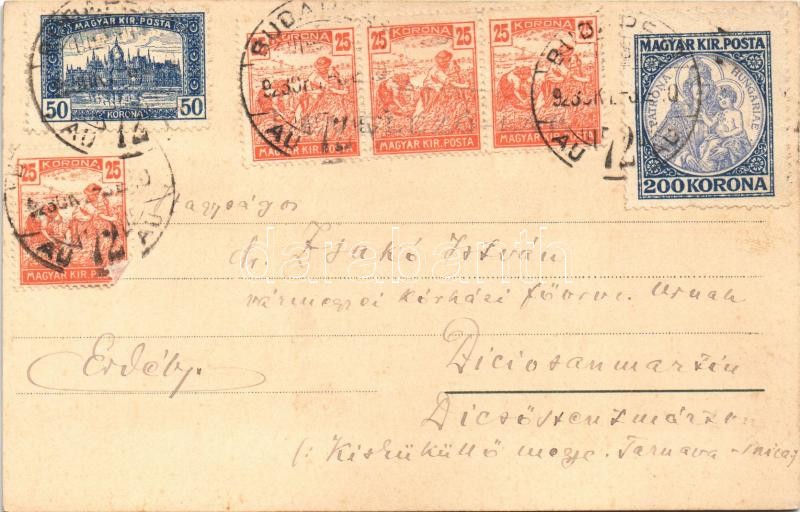 MAGYAR KIR. POSTA
50 50
KORONA
25 KORONA 25
MAGYAR KIR. POSTA
25 KORONA 25
MAGYAR KIR. POSTA
25 KORONA 25
MAGYAR KIR. POSTA
MAGYAR KIR. POSTA
PATRONA HUNGARIAE
200 KORONA
BUDAPEST
72
25 KORONA
MAGYAR KIR. POSTA
72
Nagyságos
dr. Zsakó István
vármegyei kórházi főorv. Urnak
Erdély
Diciosanmartin
Dicsőszentmárton
(: Kisküküllő megye. Tarnava-
darabanth